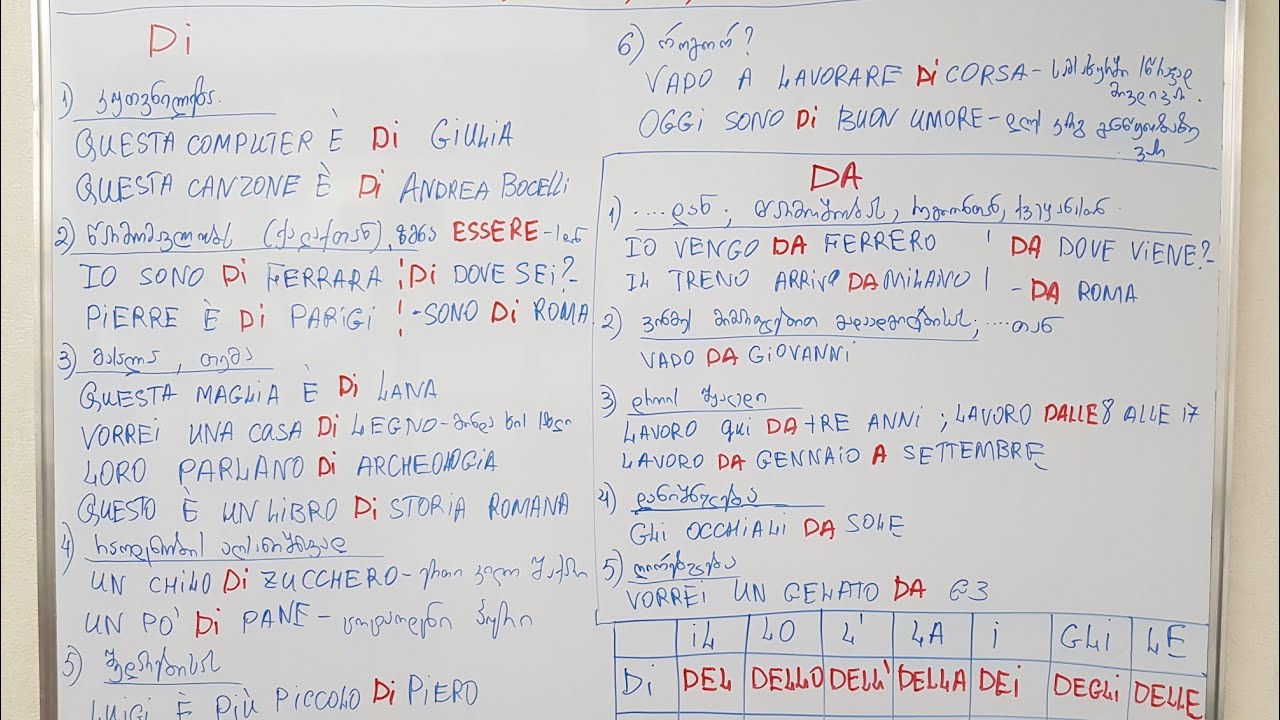 Di
1) კუთვნილება.
QUESTA COMPUTER È Di GIULIA
QUESTA CANZONE È Di ANDREA BOCELLI
2) წარმომავლობის (ქალაქიდან), ზმნა ESSERE-სთან
IO SONO Di FERRARA ¦ Di DOVE SEI?-
PIERRE È Di PARIGI ¦ -SONO Di ROMA
3) მასალა, თემა
QUESTA MAGLIA È Di LANA
VORREI UNA CASA Di LEGNO-მინდა ხის სახლი
LORO PARLANO Di ARCHEOLOGIA
QUESTO È UN LIBRO Di STORIA ROMANA
4) რაოდენობის აღსანიშნავად
UN CHILO Di ZUCCHERO-ერთი კილო შაქარი
UN PO' Di PANE - ცოტაოდენი პური
5) შედარებისას
LUIGI È PIÙ PICCOLO Di PIERO
6) როგორ?
VADO A LAVORARE Di CORSA - სამსახურში სწრაფად
მივდივარ.
OGGI SONO Di BUON UMORE - დღეს კარგ გუნებაზე
ვარ
DA
1) ....დან;
IO VENGO DA FERRERO ' DA DOVE VIENE?-
IL TRENO ARRIVA DA MILANO | - DA ROMA
2) ....თან
VADO DA GIOVANNI
3) დროის შუალედი
LAVORO QUI DA TRE ANNI; LAVORO DALLE 8 ALLE 17
LAVORO DA GENNAIO A SETTEMBRE
4) დანიშნულება
GLI OCCHIALI DA SOLE
5) ღირებულება
VORREI UN GELATO DA €3
IL LO L' LA I GLI LE
Di DEL DELLO DELL' DELLA DEI DEGLI DELLE